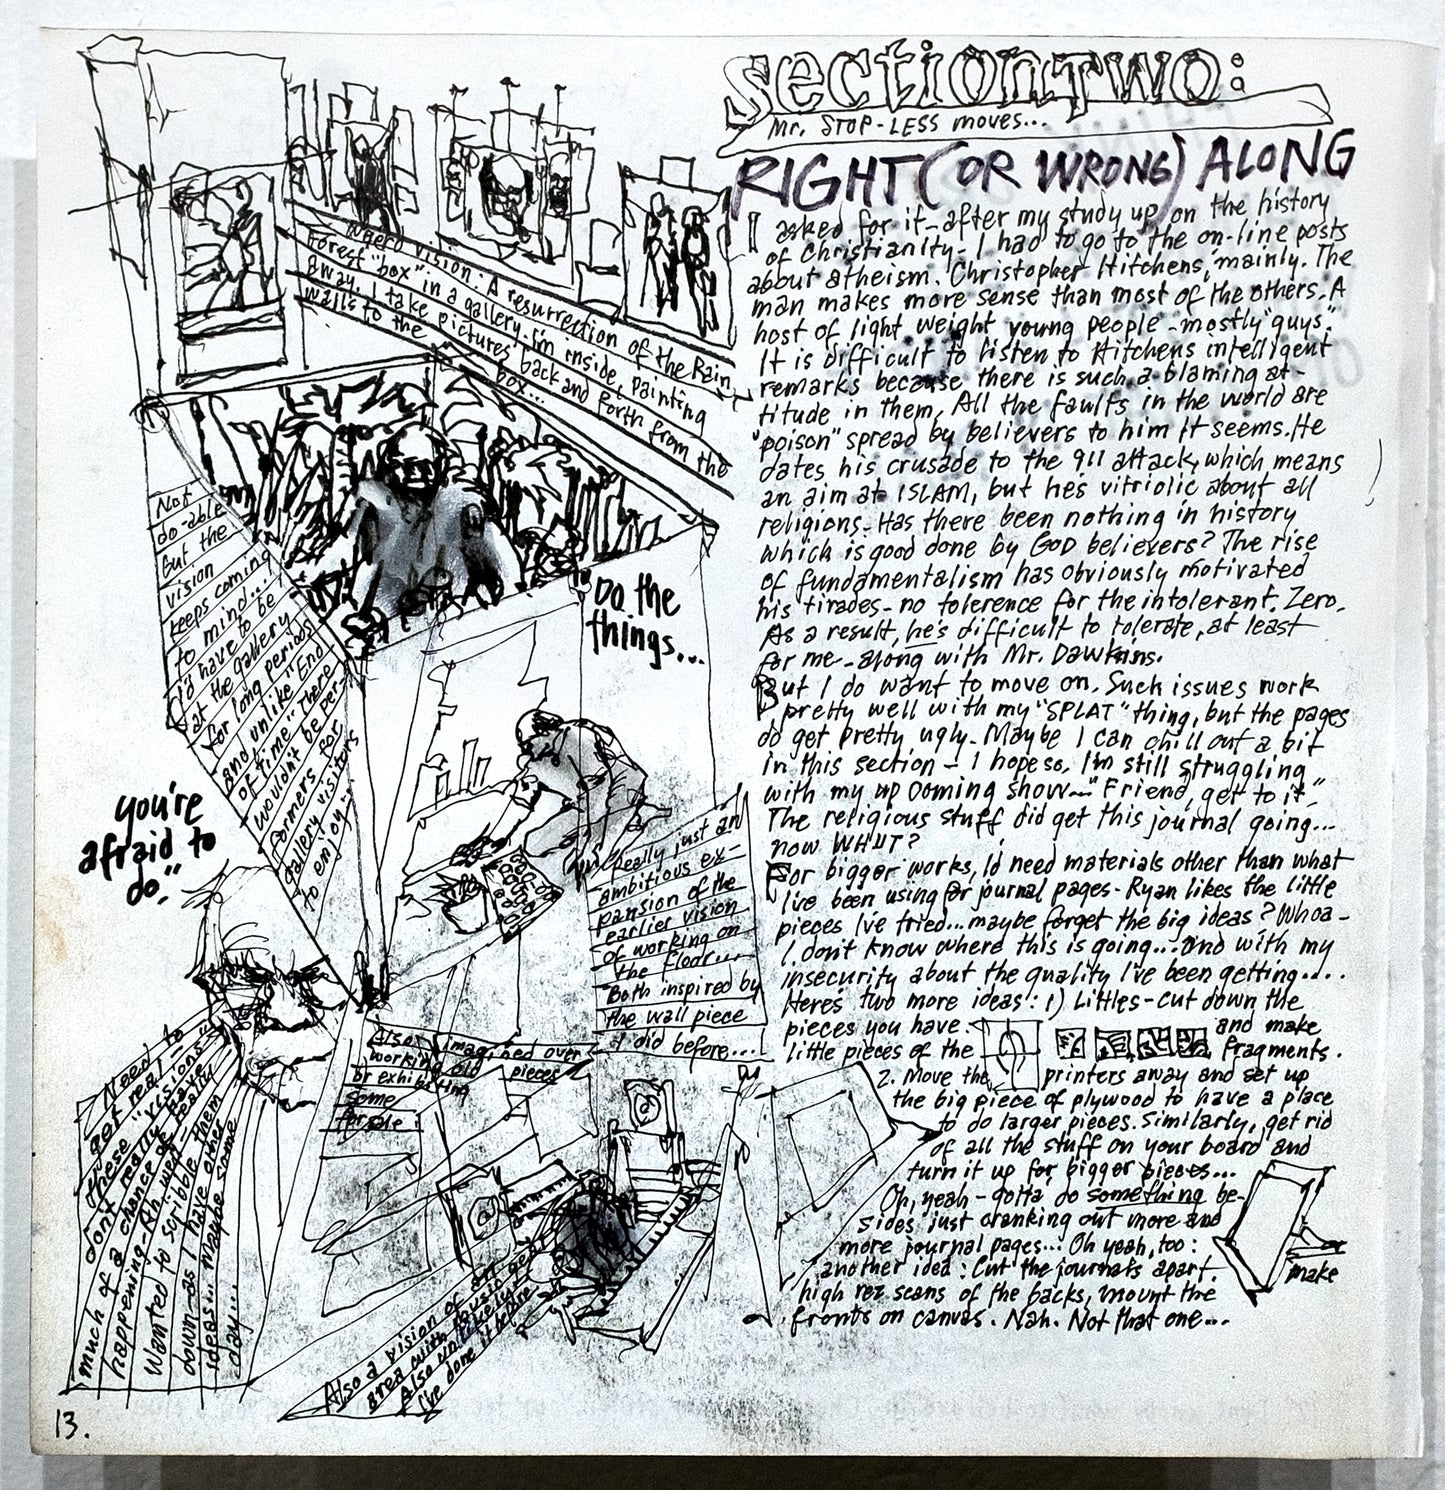 section TWO:
Mr. STOP-LESS moves...
RIGHT (OR WRONG) ALONG
I asked for it- after my study up on the history
of Christianity- I had to go to the on-line posts
about atheism. Christopher Hitchens, mainly. The
man makes more sense than most of the others. A
host of light weight young people - mostly "guys".
It is difficult to listen to Hitchens intelligent
remarks because there is such a blaming at-
titude in them. All the faults in the world are
"poison" spread by believers to him it seems. He
dates his crusade to the 911 attack, which means
an aim at ISLAM, but he's vitriolic about all
religions. Has there been nothing in history
which is good done by GOD believers? The rise
of fundamentalism has obviously motivated
his tirades- no tolerence for the intolerant. Zero.
As a result, he's difficult to tolerate, at least
for me - along with Mr. Dawkins.
But I do want to move on. Such issues work
pretty well with my "SPLAT" thing, but the pages
do get pretty ugly. Maybe I can chill out a bit
in this section - I hope so. I'm still struggling
with my up coming show - "Friend, get to it."
The religious stuff did get this journal going...
now WHUT?
For bigger works, I'd need materials other than what
I've been using for journal pages- Ryan likes the little
pieces I've tried... maybe forget the big ideas? Whoa-
I don't know where this is going... and with my
insecurity about the quality I've been getting....
Here's two more ideas: 1) Littles- cut down the
pieces you have and make
little pieces of the fragments.
2. Move the printers away and set up
the big piece of plywood to have a place
to do larger pieces. Similarly, get rid
of all the stuff on your board and
turn it up for bigger pieces...
Oh, yeah - gotta do something be-
sides just cranking out more and
more journal pages... Oh yeah, too:
another idea: Cut the journals apart.
high rez scans of the backs, mount the
fronts on canvas. Nah. Not that one...
or
make
vision: A resurrection of the Rain
Forest "box" in a gallery. I'm inside, painting
away. I take pictures back and forth from the
walls to the box...
Not
do-able
but the
vision
keeps coming
to mind...
I'd have to be
at the gallery
for long periods
and unlike "End
of time" there
wouldn't be per-
formers for
gallery visitors
to enjoy...
Do the
things...
you're
afraid to
do."
Really just an
ambitious ex-
pansion of the
earlier vision
of working on
the floor...
Both inspired by
the wall piece
I did before...
Also imagined over
working old pieces
or exhibiting
some
for sale
Need to
get real-
these "visions"
don't really have
much of a chance of really
happening- Ah, well
Wanted to scribble them
down- as I have other
ideas... maybe some
day...
Also a vision of an
area with music gear
Also unlikely
I've done it before
13.